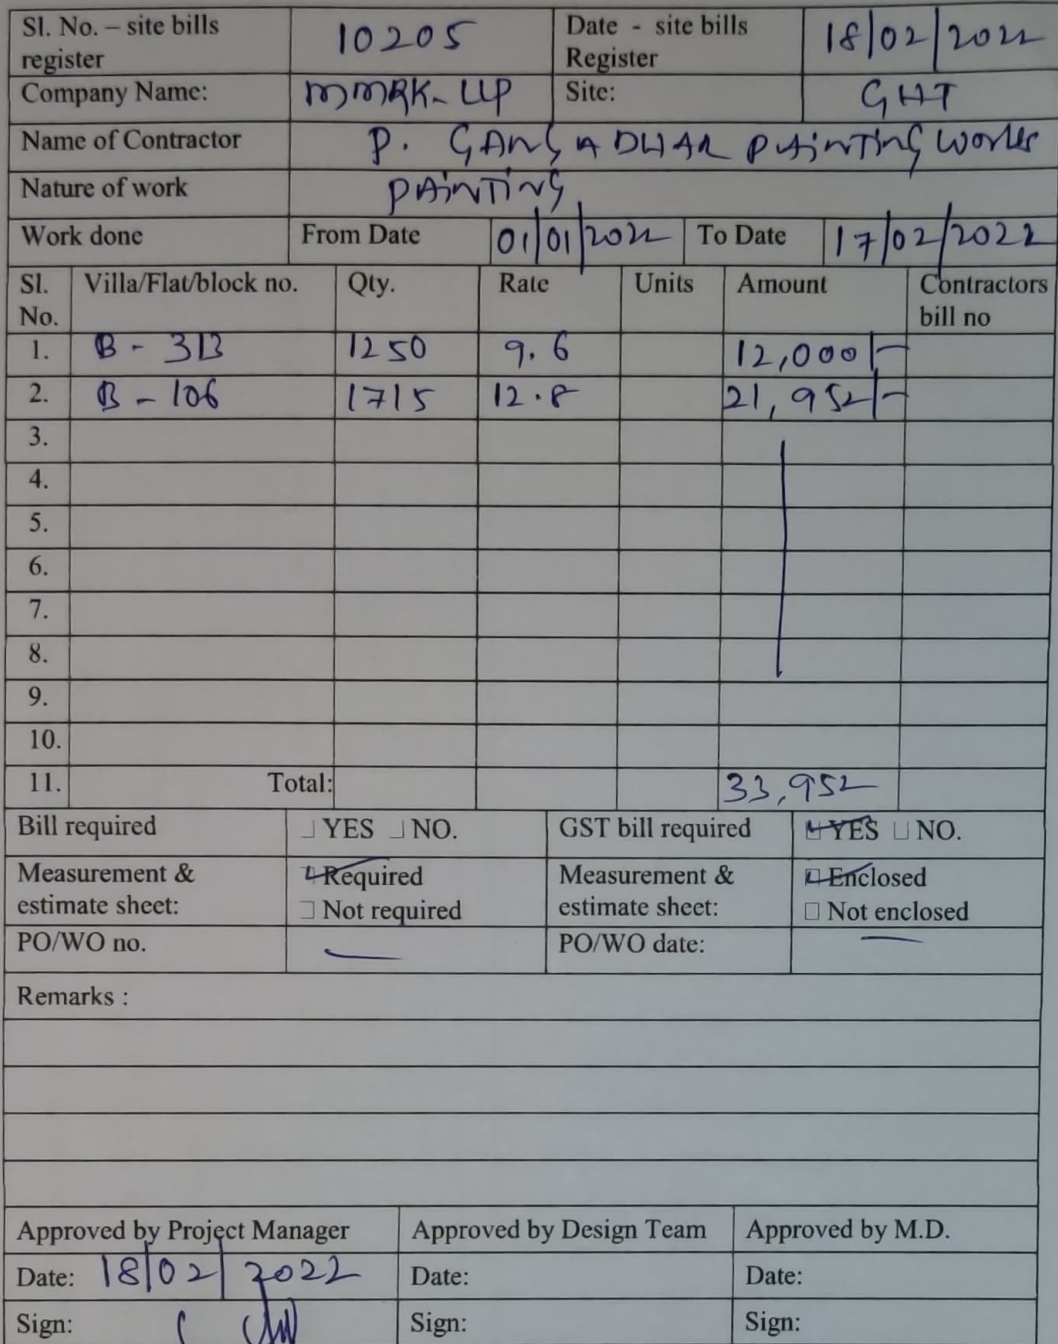 Sl. No. – site bills register 10205 Date - site bills Register 18/02/2022
Company Name: MMRK-LLP Site: GHT
Name of Contractor P. GANGADHAR PAiNTiNG Works
Nature of work PAiNTiNG
Work done From Date 01/01/2022 To Date 17/02/2022
Sl. No. Villa/Flat/block no. Qty. Rate Units Amount Contractors bill no
1. B - 313 1250 9.6 12,000/-
2. B - 106 1715 12.8 21,952/-
3.
4.
5.
6.
7.
8.
9.
10.
11. Total: 33,952
Bill required YES NO. GST bill required YES NO.
Measurement & estimate sheet: Required Not required Measurement & estimate sheet: Enclosed Not enclosed
PO/WO no. PO/WO date:
Remarks :
Approved by Project Manager Approved by Design Team Approved by M.D.
Date: 18/02/2022 Date: Date:
Sign: Sign: Sign: